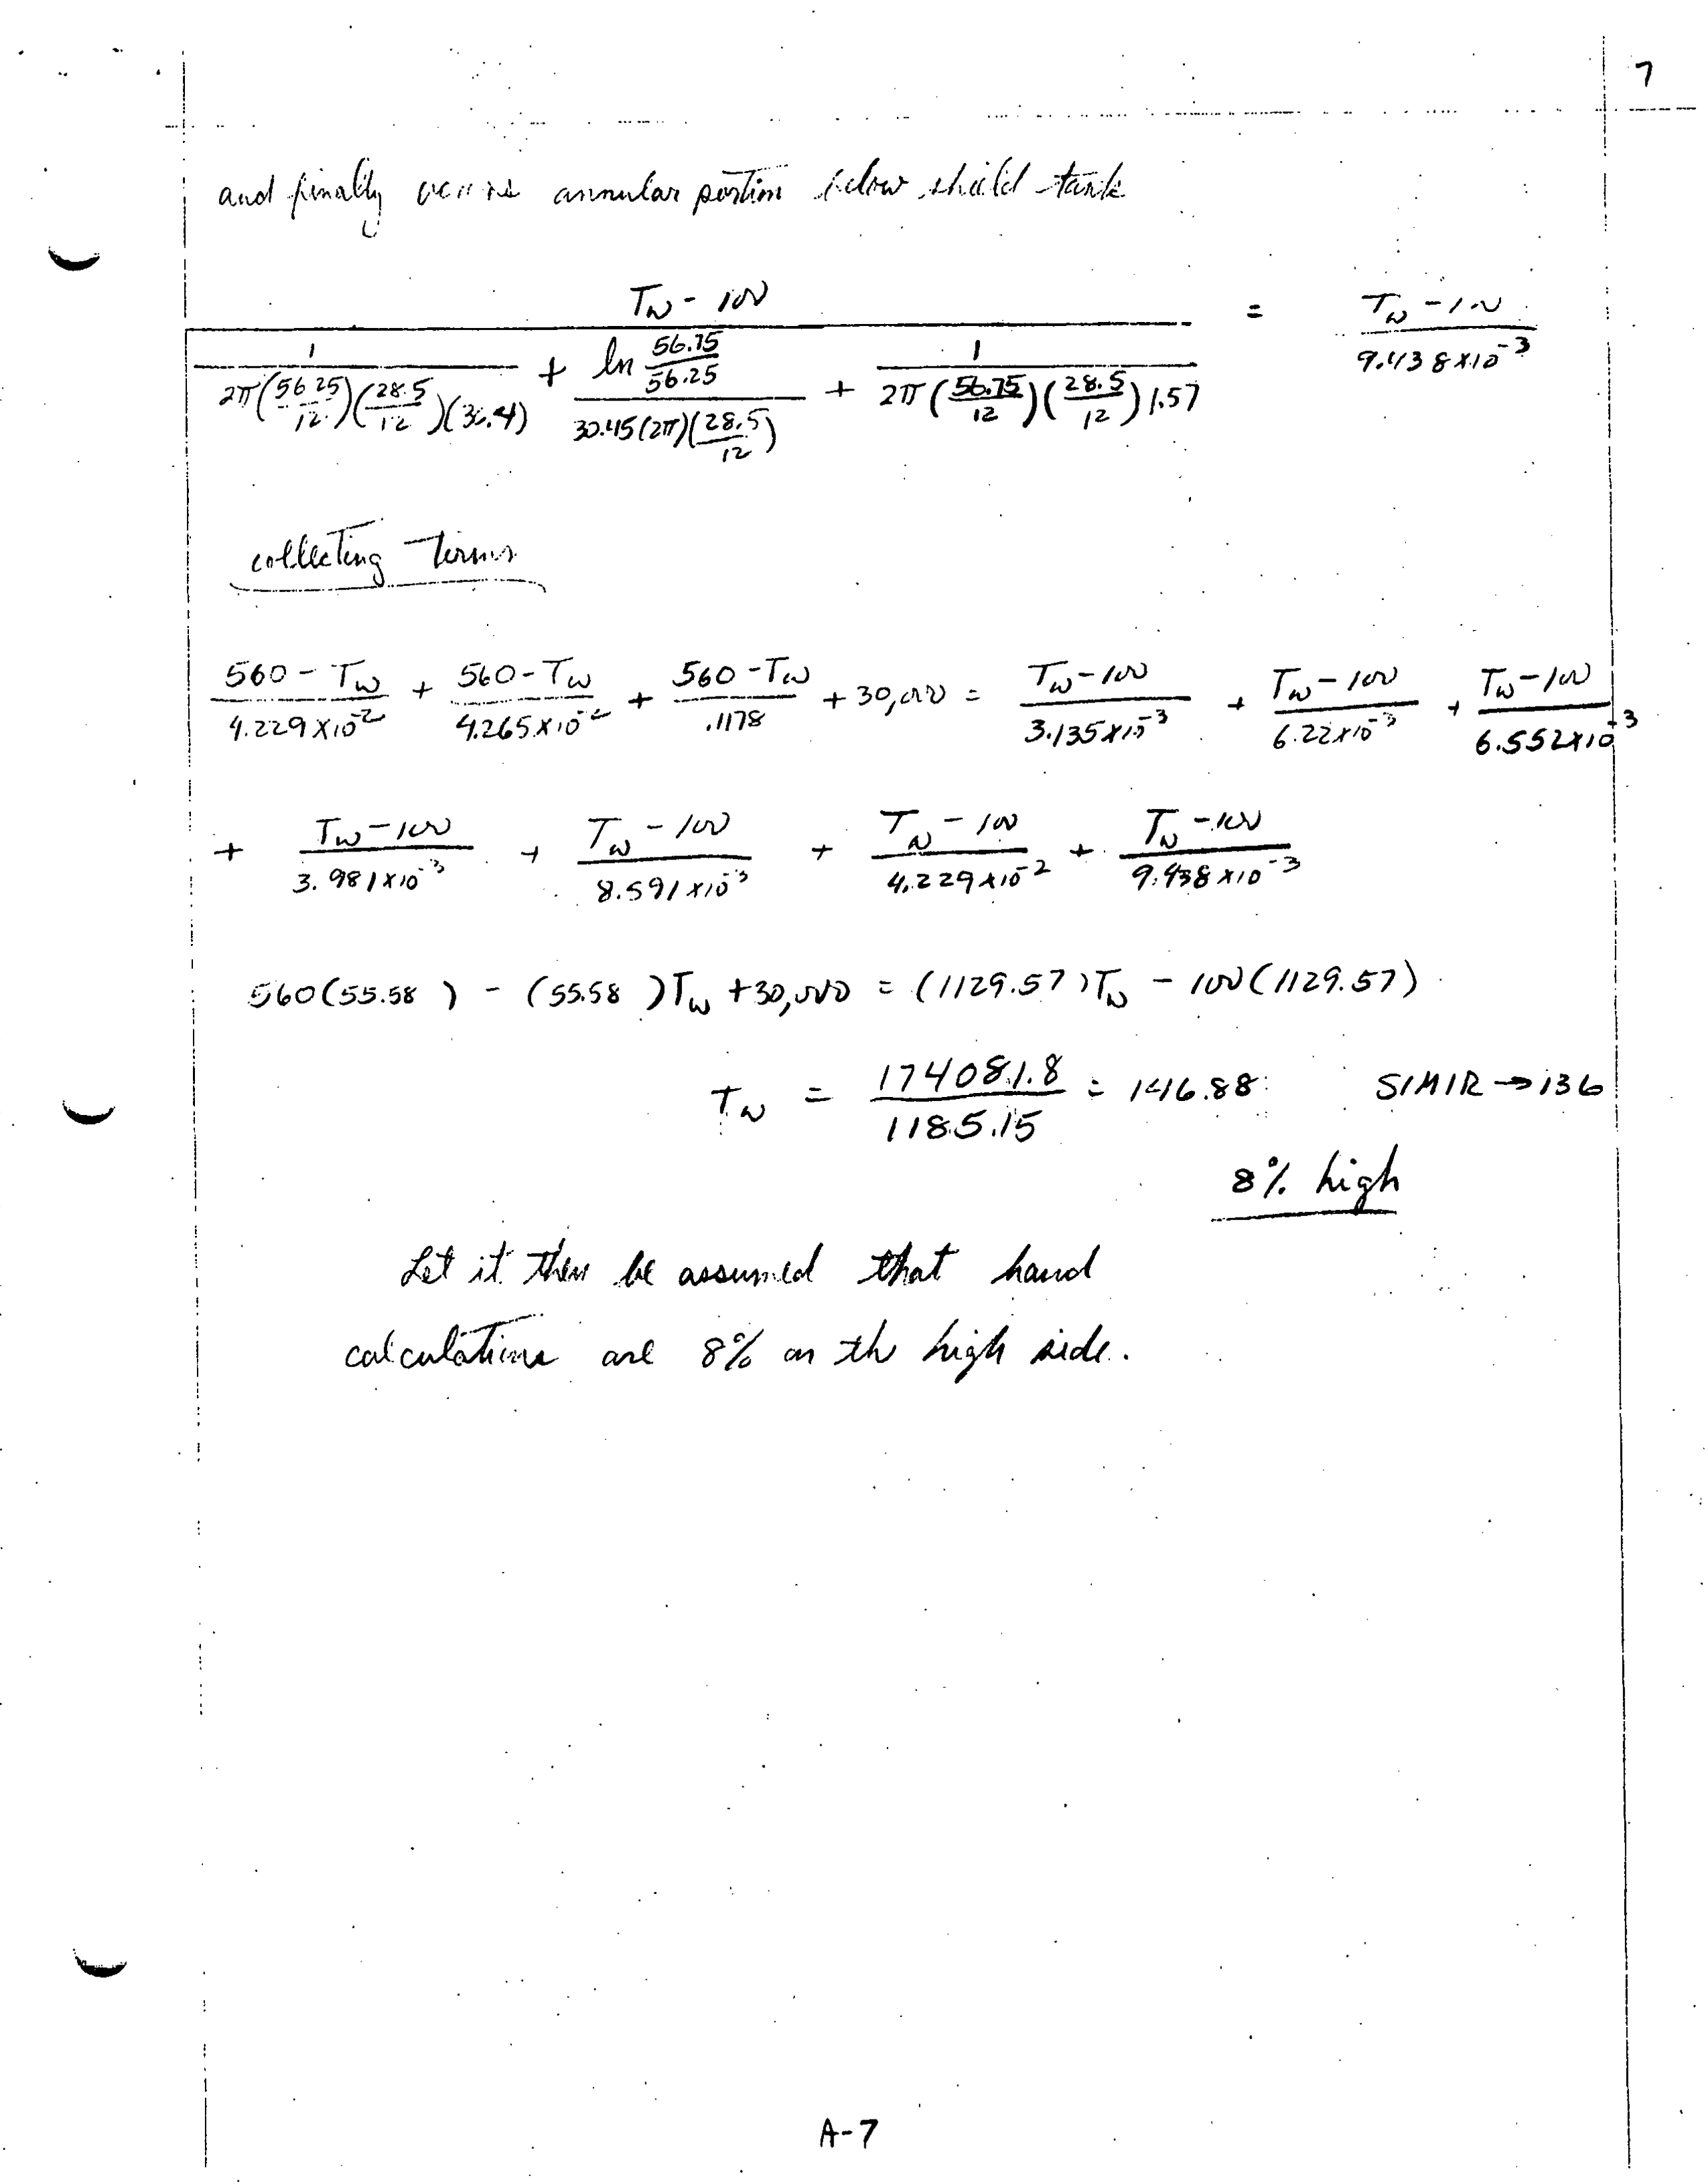 7
and finally annular portion below shield tank
Tw - 100 / [ 1 / (2π(56.25/12)(28.5/12)(36.4)) + ln(56.75/56.25) / (30.45(2π)(28.5/12)) + 1 / (2π(56.75/12)(28.5/12)1.57) ] = Tw - 100 / 9.438x10^-3
collecting terms
560 - Tw / 4.229x10^-2 + 560 - Tw / 4.265x10^-2 + 560 - Tw / .1178 + 30,000 = Tw - 100 / 3.135x10^-3 + Tw - 100 / 6.22x10^-3 + Tw - 100 / 6.552x10^-3
+ Tw - 100 / 3.981x10^-3 + Tw - 100 / 8.591x10^-3 + Tw - 100 / 4.229x10^-2 + Tw - 100 / 9.438x10^-3
560(55.58) - (55.58)Tw + 30,000 = (1129.57)Tw - 100(1129.57)
Tw = 174081.8 / 1185.15 = 146.88 SIMIR → 136
8% high
Let it then be assumed that hand
calculations are 8% on the high side.
A-7